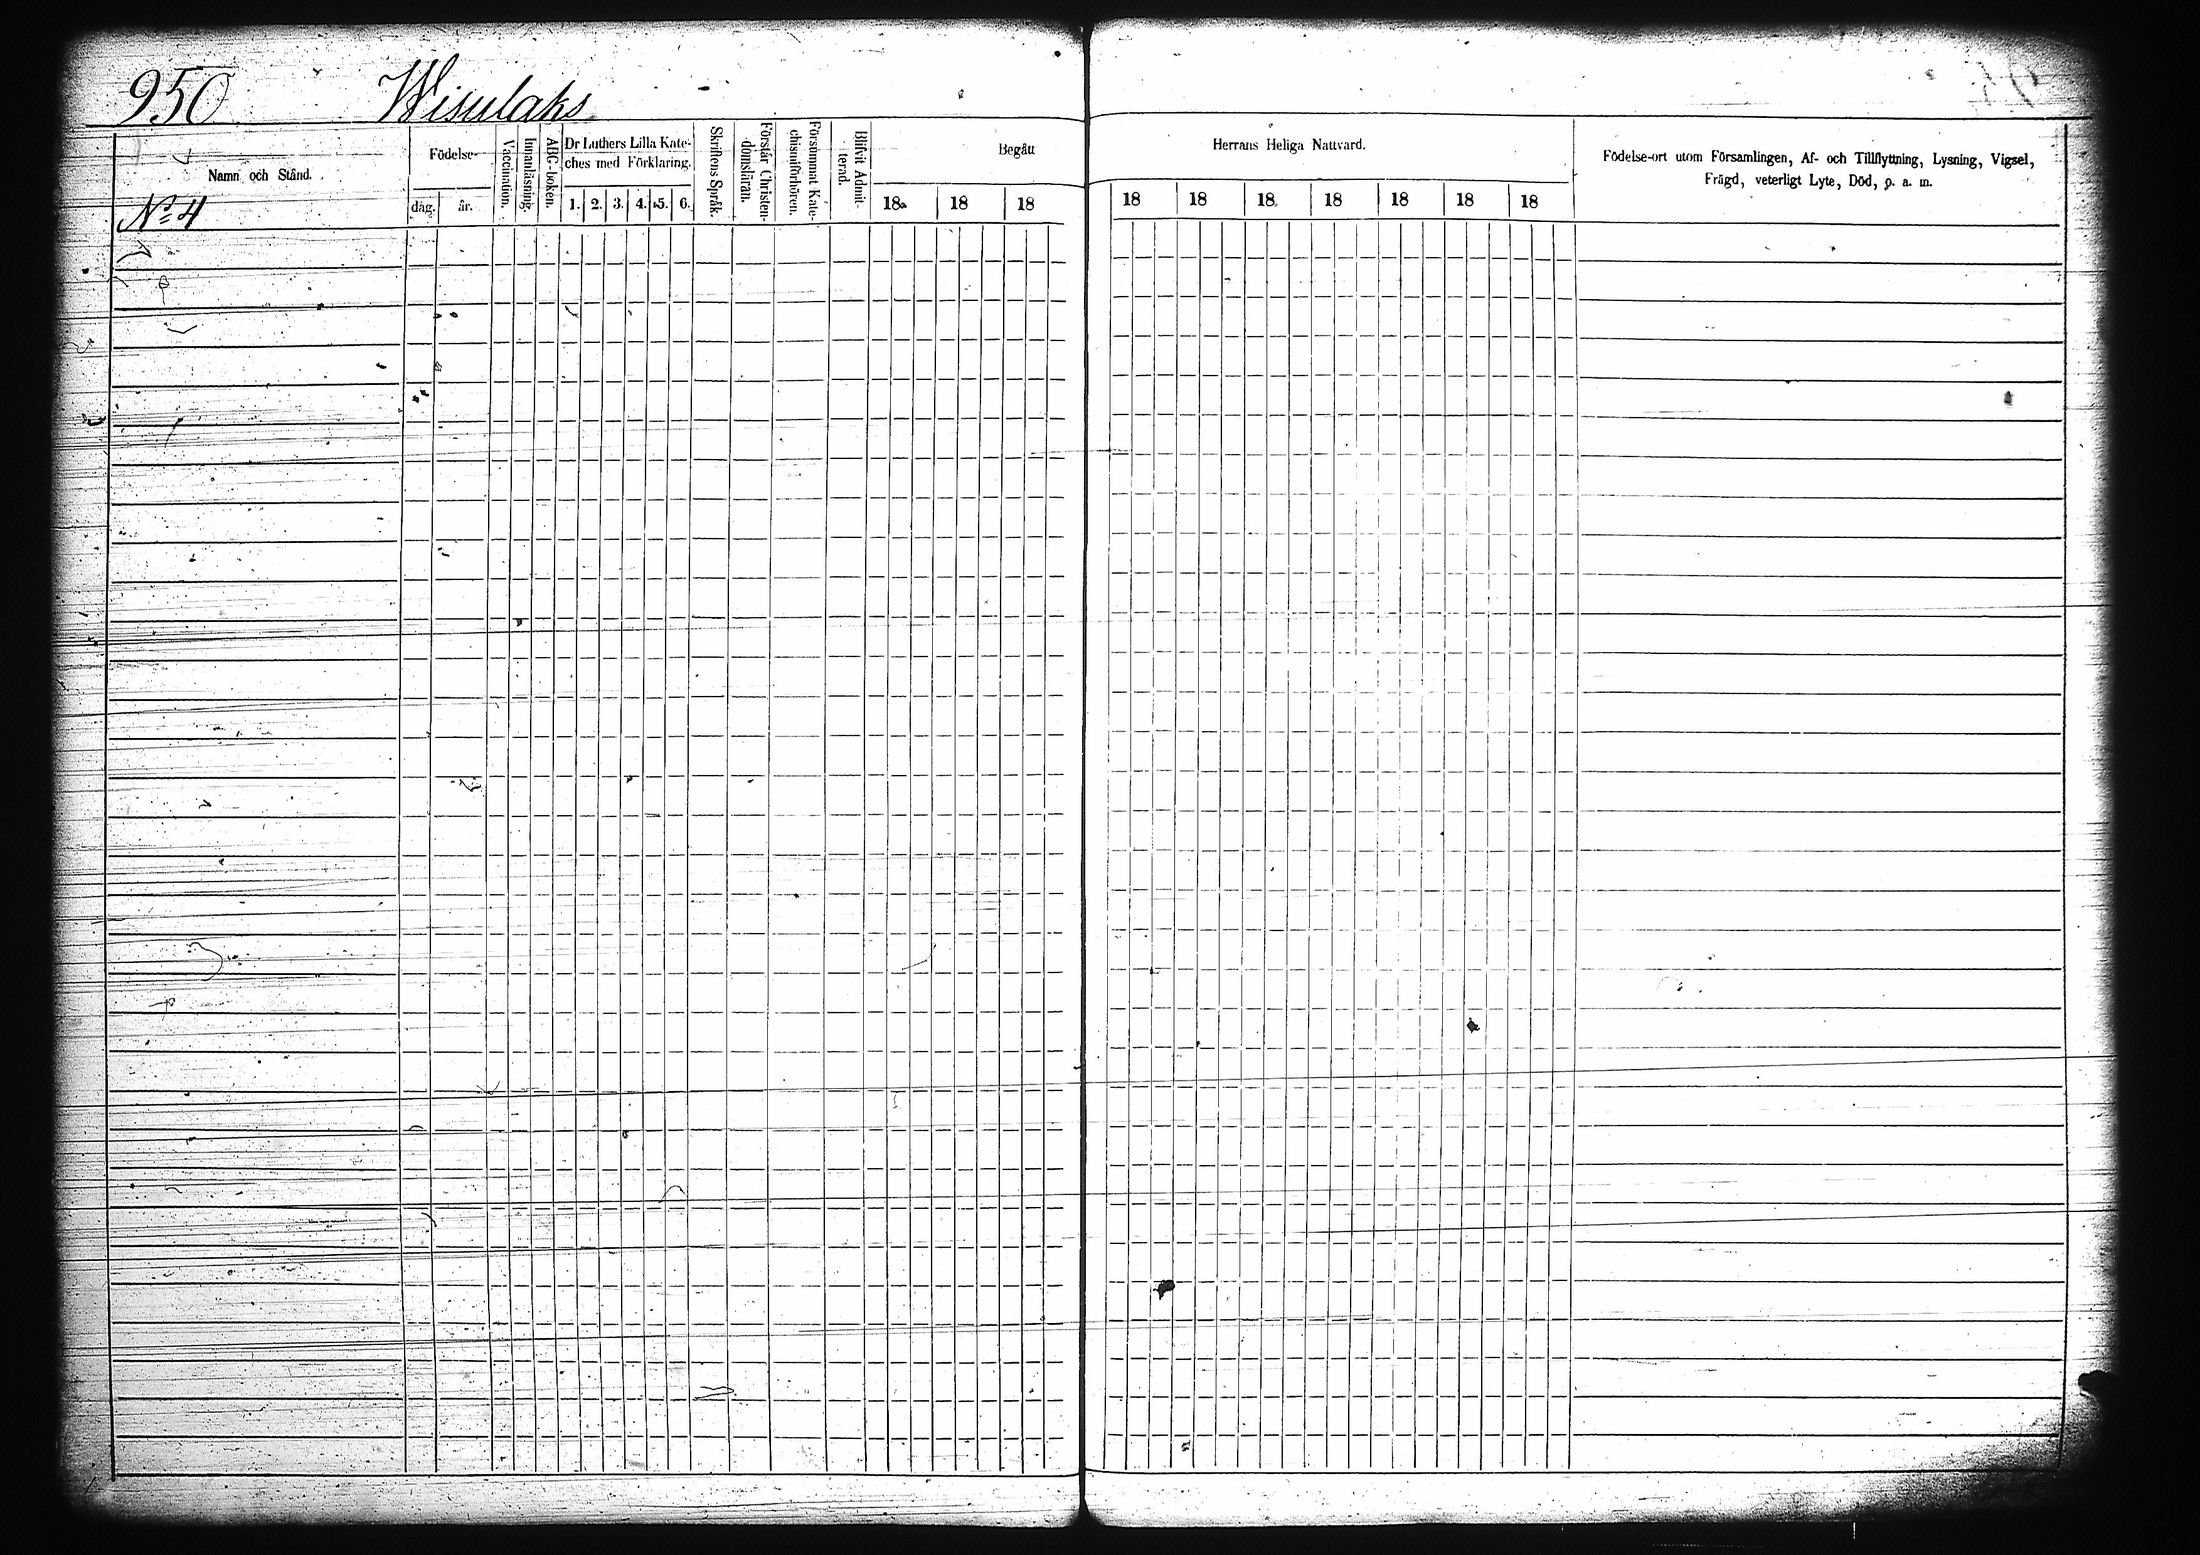 950 Wisulaks
Namn och Stånd.
N:o 4
Födelse-
dag. år.
Vaccination.
Innanläsning.
ABC-boken.
Dr Luthers Lilla Kate-
ches med Förklaring.
1. 2. 3. 4. 5. 6.
Skriftens Språk.
Förstår Christen-
domsläran.
Försummat Kate-
chismiförhören.
Blifvit Admit-
terad.
Begått
18 18 18
Herrans Heliga Nattvard.
18 18 18 18 18 18 18
Födelse-ort utom Församlingen, Af- och Tillflyttning, Lysning, Vigsel,
Frägd, veterligt Lyte, Död, p. a. m.